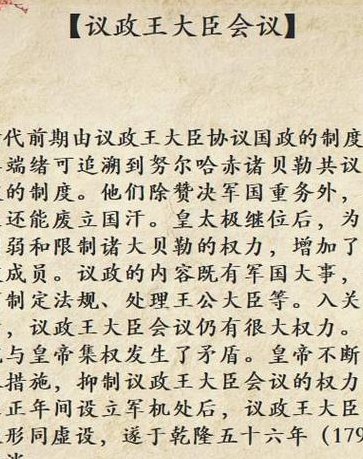 【议政王大臣会议】
代前期由议政王大臣协议国政的制度
端绪可追溯到努尔哈赤诸贝勒共议
的制度。他们除赞决军国重务外，
还能废立国汗。皇太极继位后，为
弱和限制诸大贝勒的权力，增加了
成员。议政的内容既有军国大事，
制定法规、处理王公大臣等。入关
，议政王大臣会议仍有很大权力。
与皇帝集权发生了矛盾。皇帝不断
措施，抑制议政王大臣会议的权力
正年间设立军机处后，议政王大臣
形同虚设，遂于乾隆五十六年（179